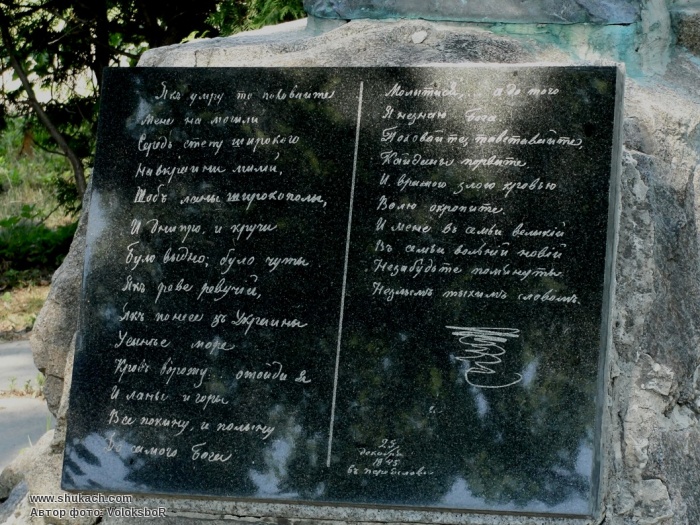 Якъ умру то поховайте
Мене на могили
Середъ степу широкого
На вкраини милий,
Щобъ ланы широкополы,
И Днипро, и кручи
Було выдно; було чуты
Якъ реве ревучый,
Якъ понесе зъ Украины
У синье море
Кровъ ворожу.. отойди я
И ланы и горы
Все покину, и полыну
До самого Бога
Молытысь,... а до того
Я незнаю Бога
Поховайте, таветавайте
Кайданы порвите
И вражою злою кровью
Волю окропите.
И мене въ семьи великій
Въ семьи вольній новій
Незабудьте помъянуты
Незлымъ тыхымъ словомъ.
25
декабря
1845
въ Переяславі
www.shukach.com
Автор фото: VoloksboR